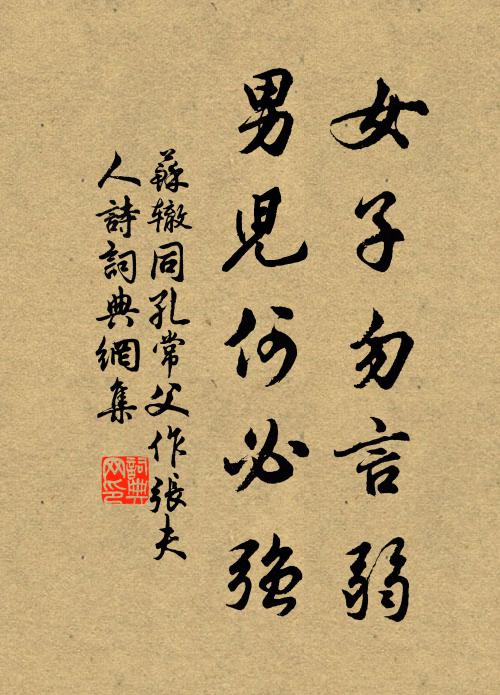 女子勿言弱
男兒何必強
蘇辙同孔常父作張夫
人詩詞典網集
詞典
网印